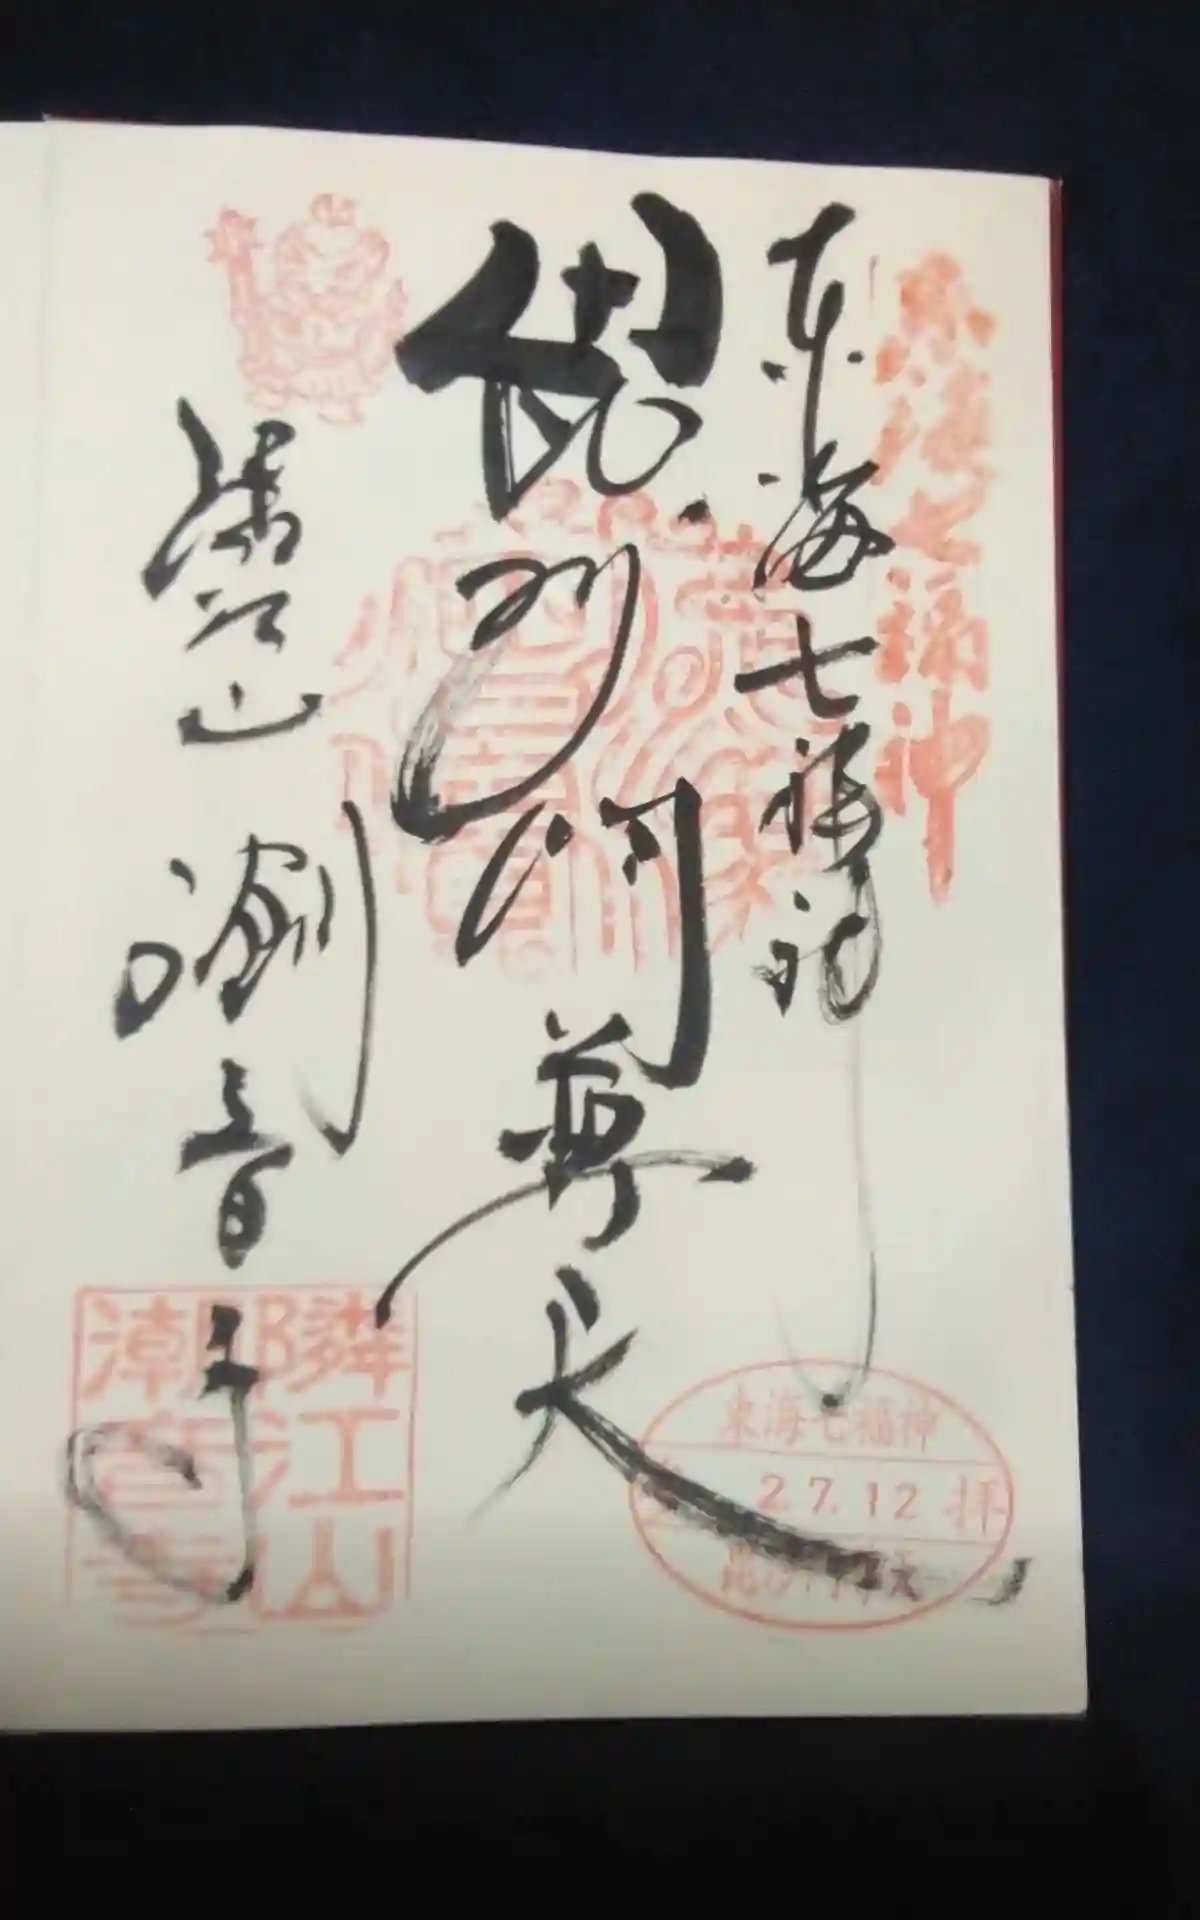 東海七福神
東海七福神
毘沙門尊天
隣江山 潮音寺
東海七福神
27.12 拝
毘沙門尊天
隣江山
潮音寺